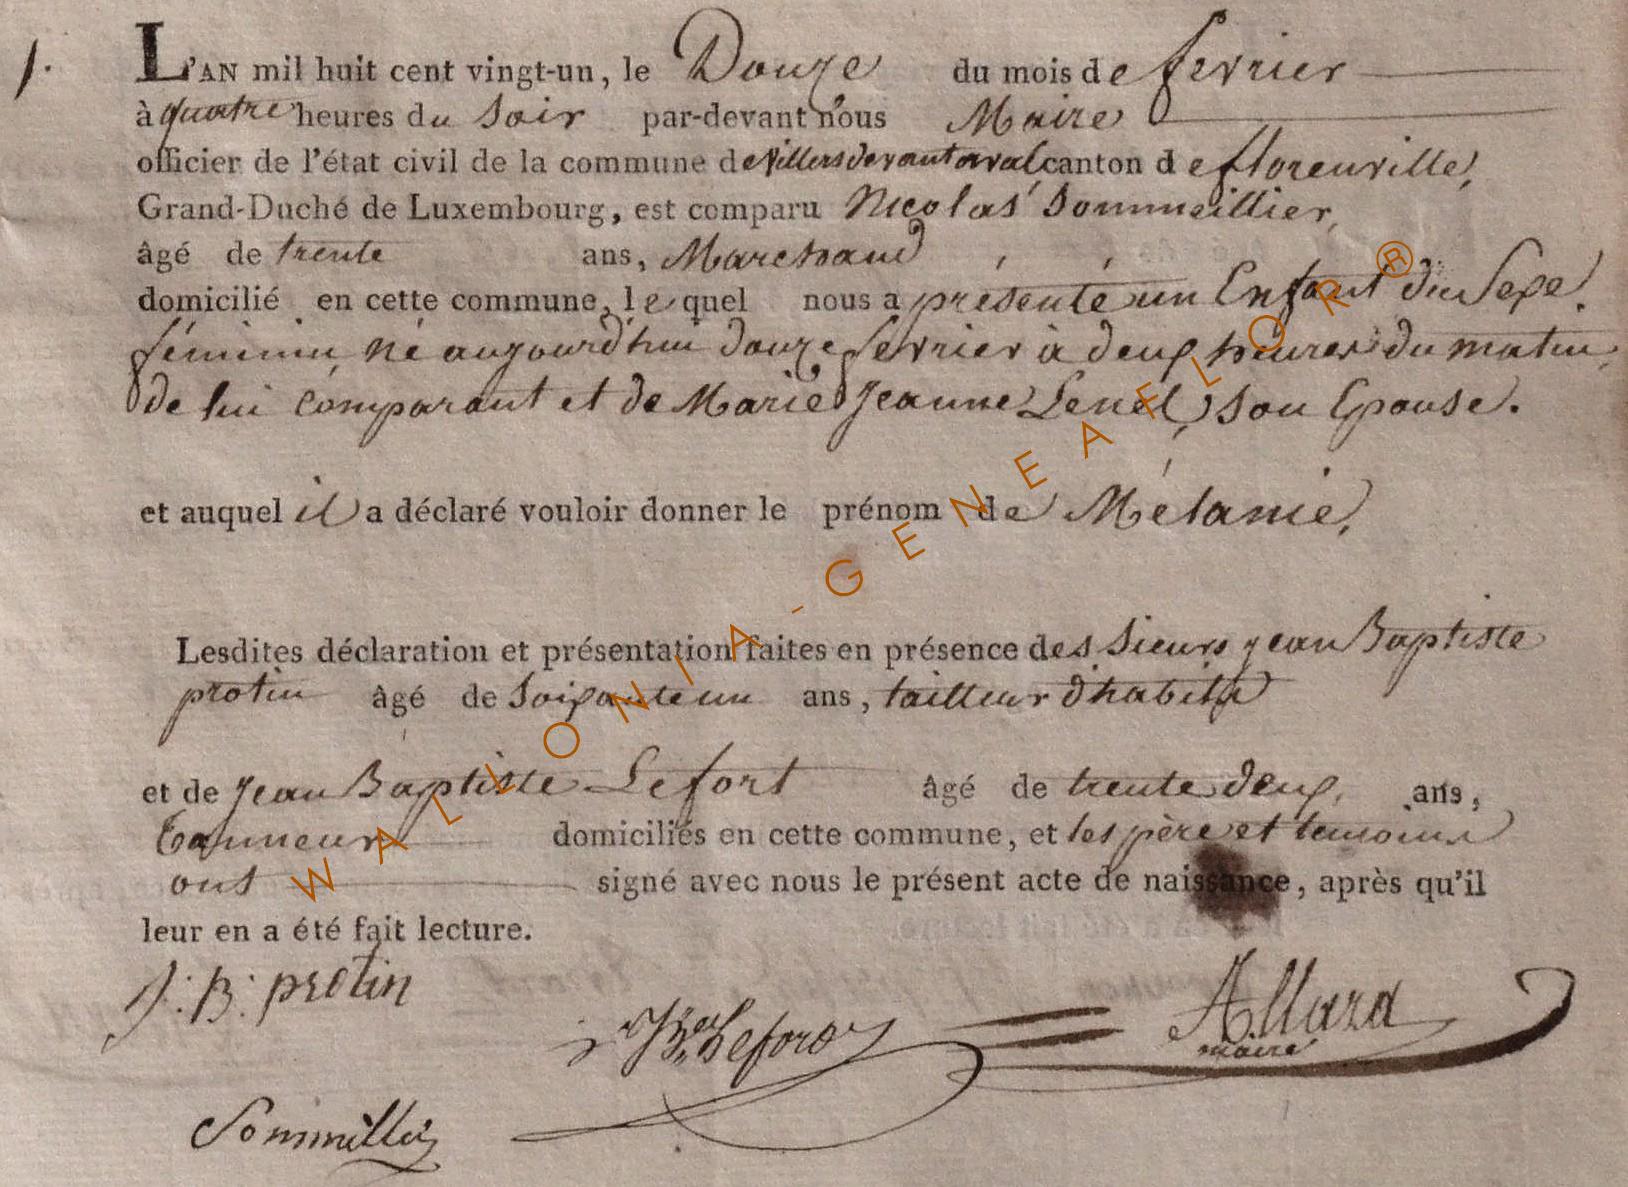 1.
L'AN mil huit cent vingt-un, le Douze du mois de fevrier
à quatre heures du Soir par-devant nous Maire
officier de l'état civil de la commune de Villers devant orval canton de florenville,
Grand-Duché de Luxembourg, est comparu Nicolas Sommeillier,
âgé de trente ans, Marchand
domicilié en cette commune, lequel nous a présenté un Enfant du Sexe
féminin né aujourd'hui douze fevrier à deux heures du matin,
de lui comparant et de Marie Jeanne son Epouse.
et auquel il a déclaré vouloir donner le prénom de Mélanie,
Lesdites déclaration et présentation faites en présence des Sieurs jean Baptiste
protin âgé de Soixante un ans, tailleur d'habits
et de jean Baptiste Lefort âgé de trente deux, ans,
tanneur domiciliés en cette commune, et les père et temoins
ont signé avec nous le présent acte de naissance, après qu'il
leur en a été fait lecture.
J: B: protin
Lefort
Allard
maire
Sommillier
WALLONIA-GENEAFLOR®